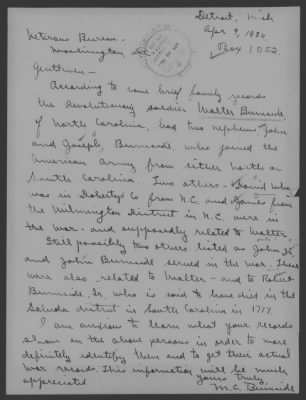 Detroit, Mich
Apr 9, 1934.
Box 1052.
Veterans Bureau -
Washington DC.
Gentlemen -
According to some brief family records
the Revolutionary soldier Walter Burnside
of North Carolina, had two nephews John
and Joseph, Burnside, who joined the
American Army from either North or
South Carolina. Two others - David who
was in Dohertys Co from N.C. and James from
the Wilmington District in N.C. were in
the War - and supposedly related to Walter.
Still possibly two others listed as John
and John Burnside served in the war. These
were also related to Walter - and to Robert
Burnside, Sr. who is said to have died in the
Saluda district in South Carolina in 1777.
I am anxious to learn what your records
show on the above persons in order to more
definitely identify them and to get their actual
war records. This information will be much
appreciated
Yours truly,
M. C. Burnside